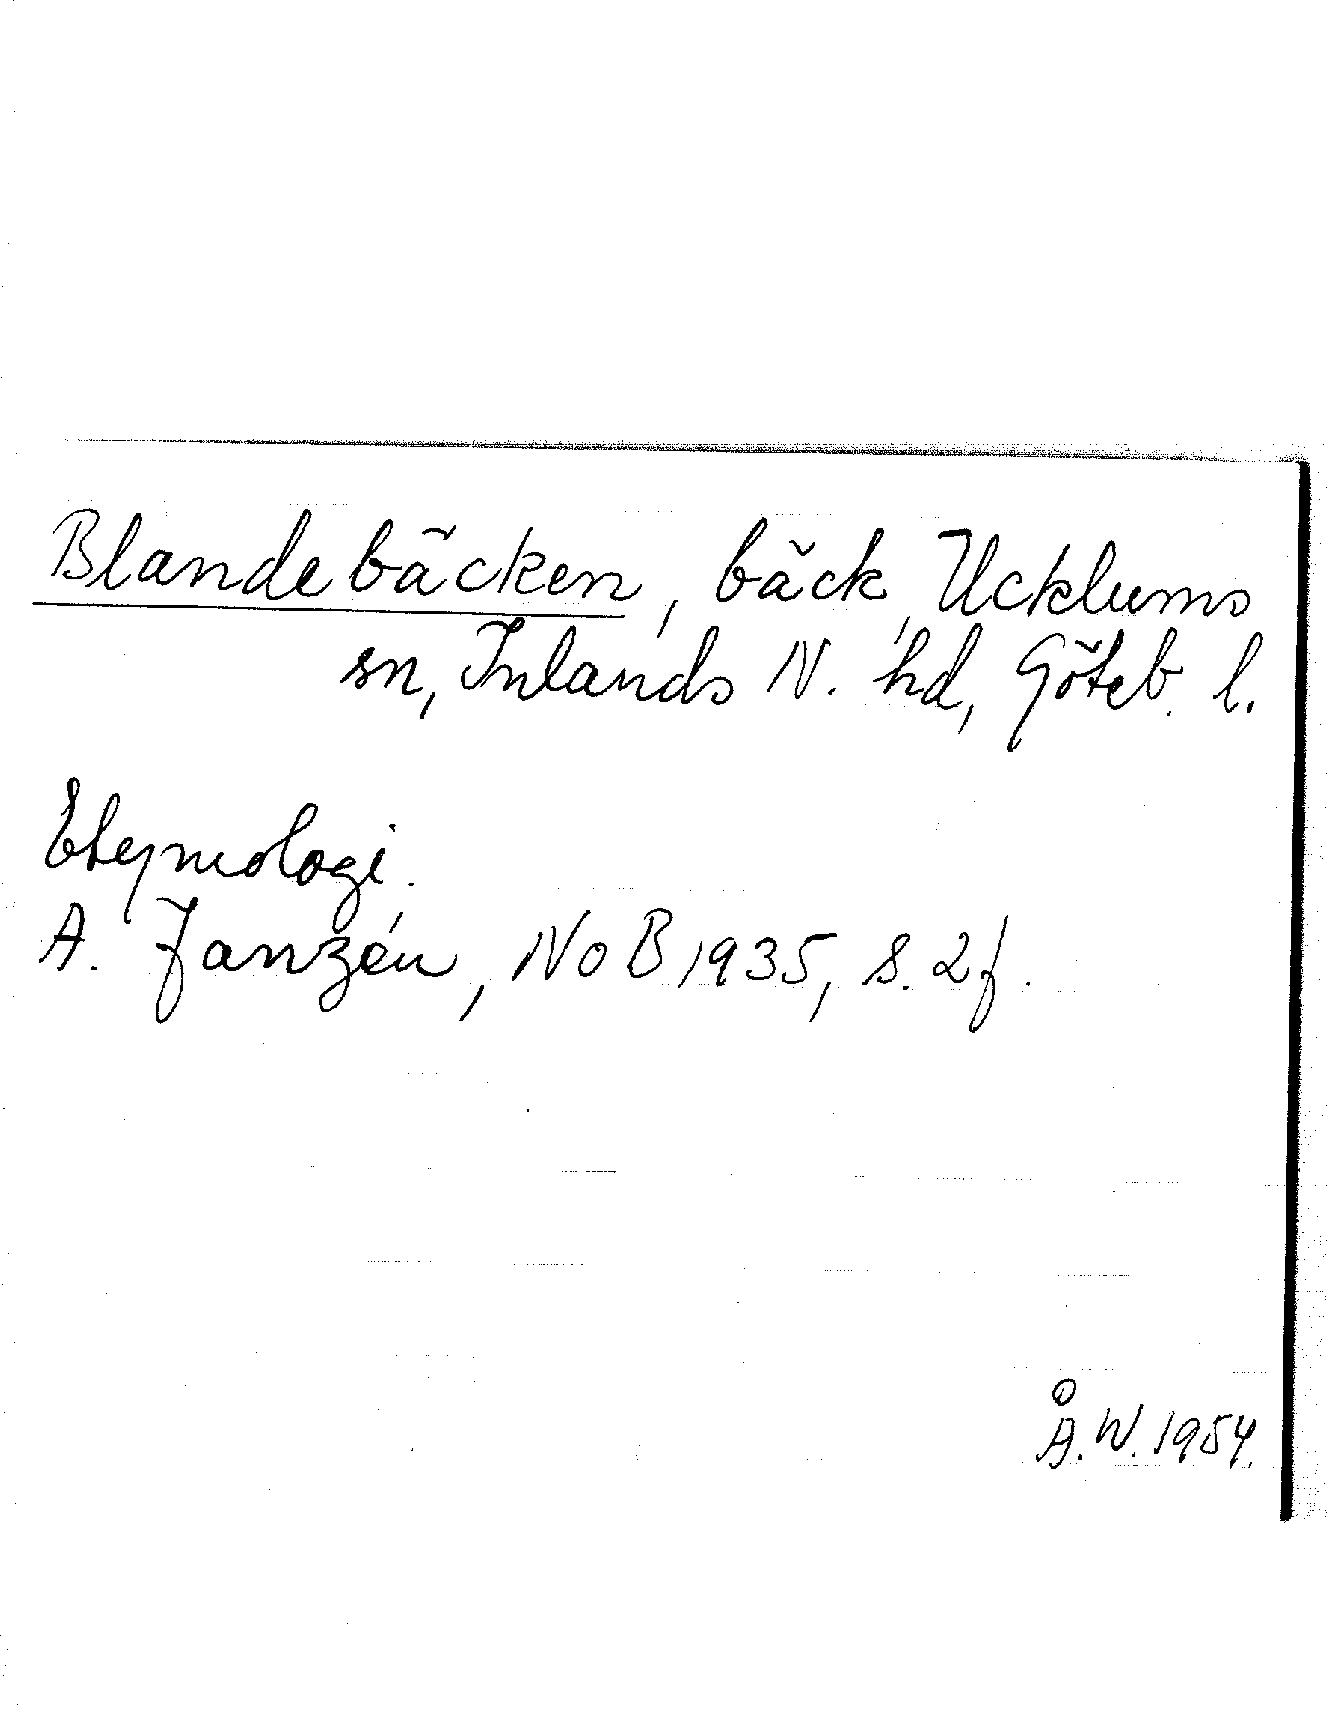 Blandebäcken, bäck, Ucklums
sn, Inlands N. hd, Göteb. l.
Etymologi.
A. Janzén, NoB 1935, s. 2f.
Å.W. 1954.